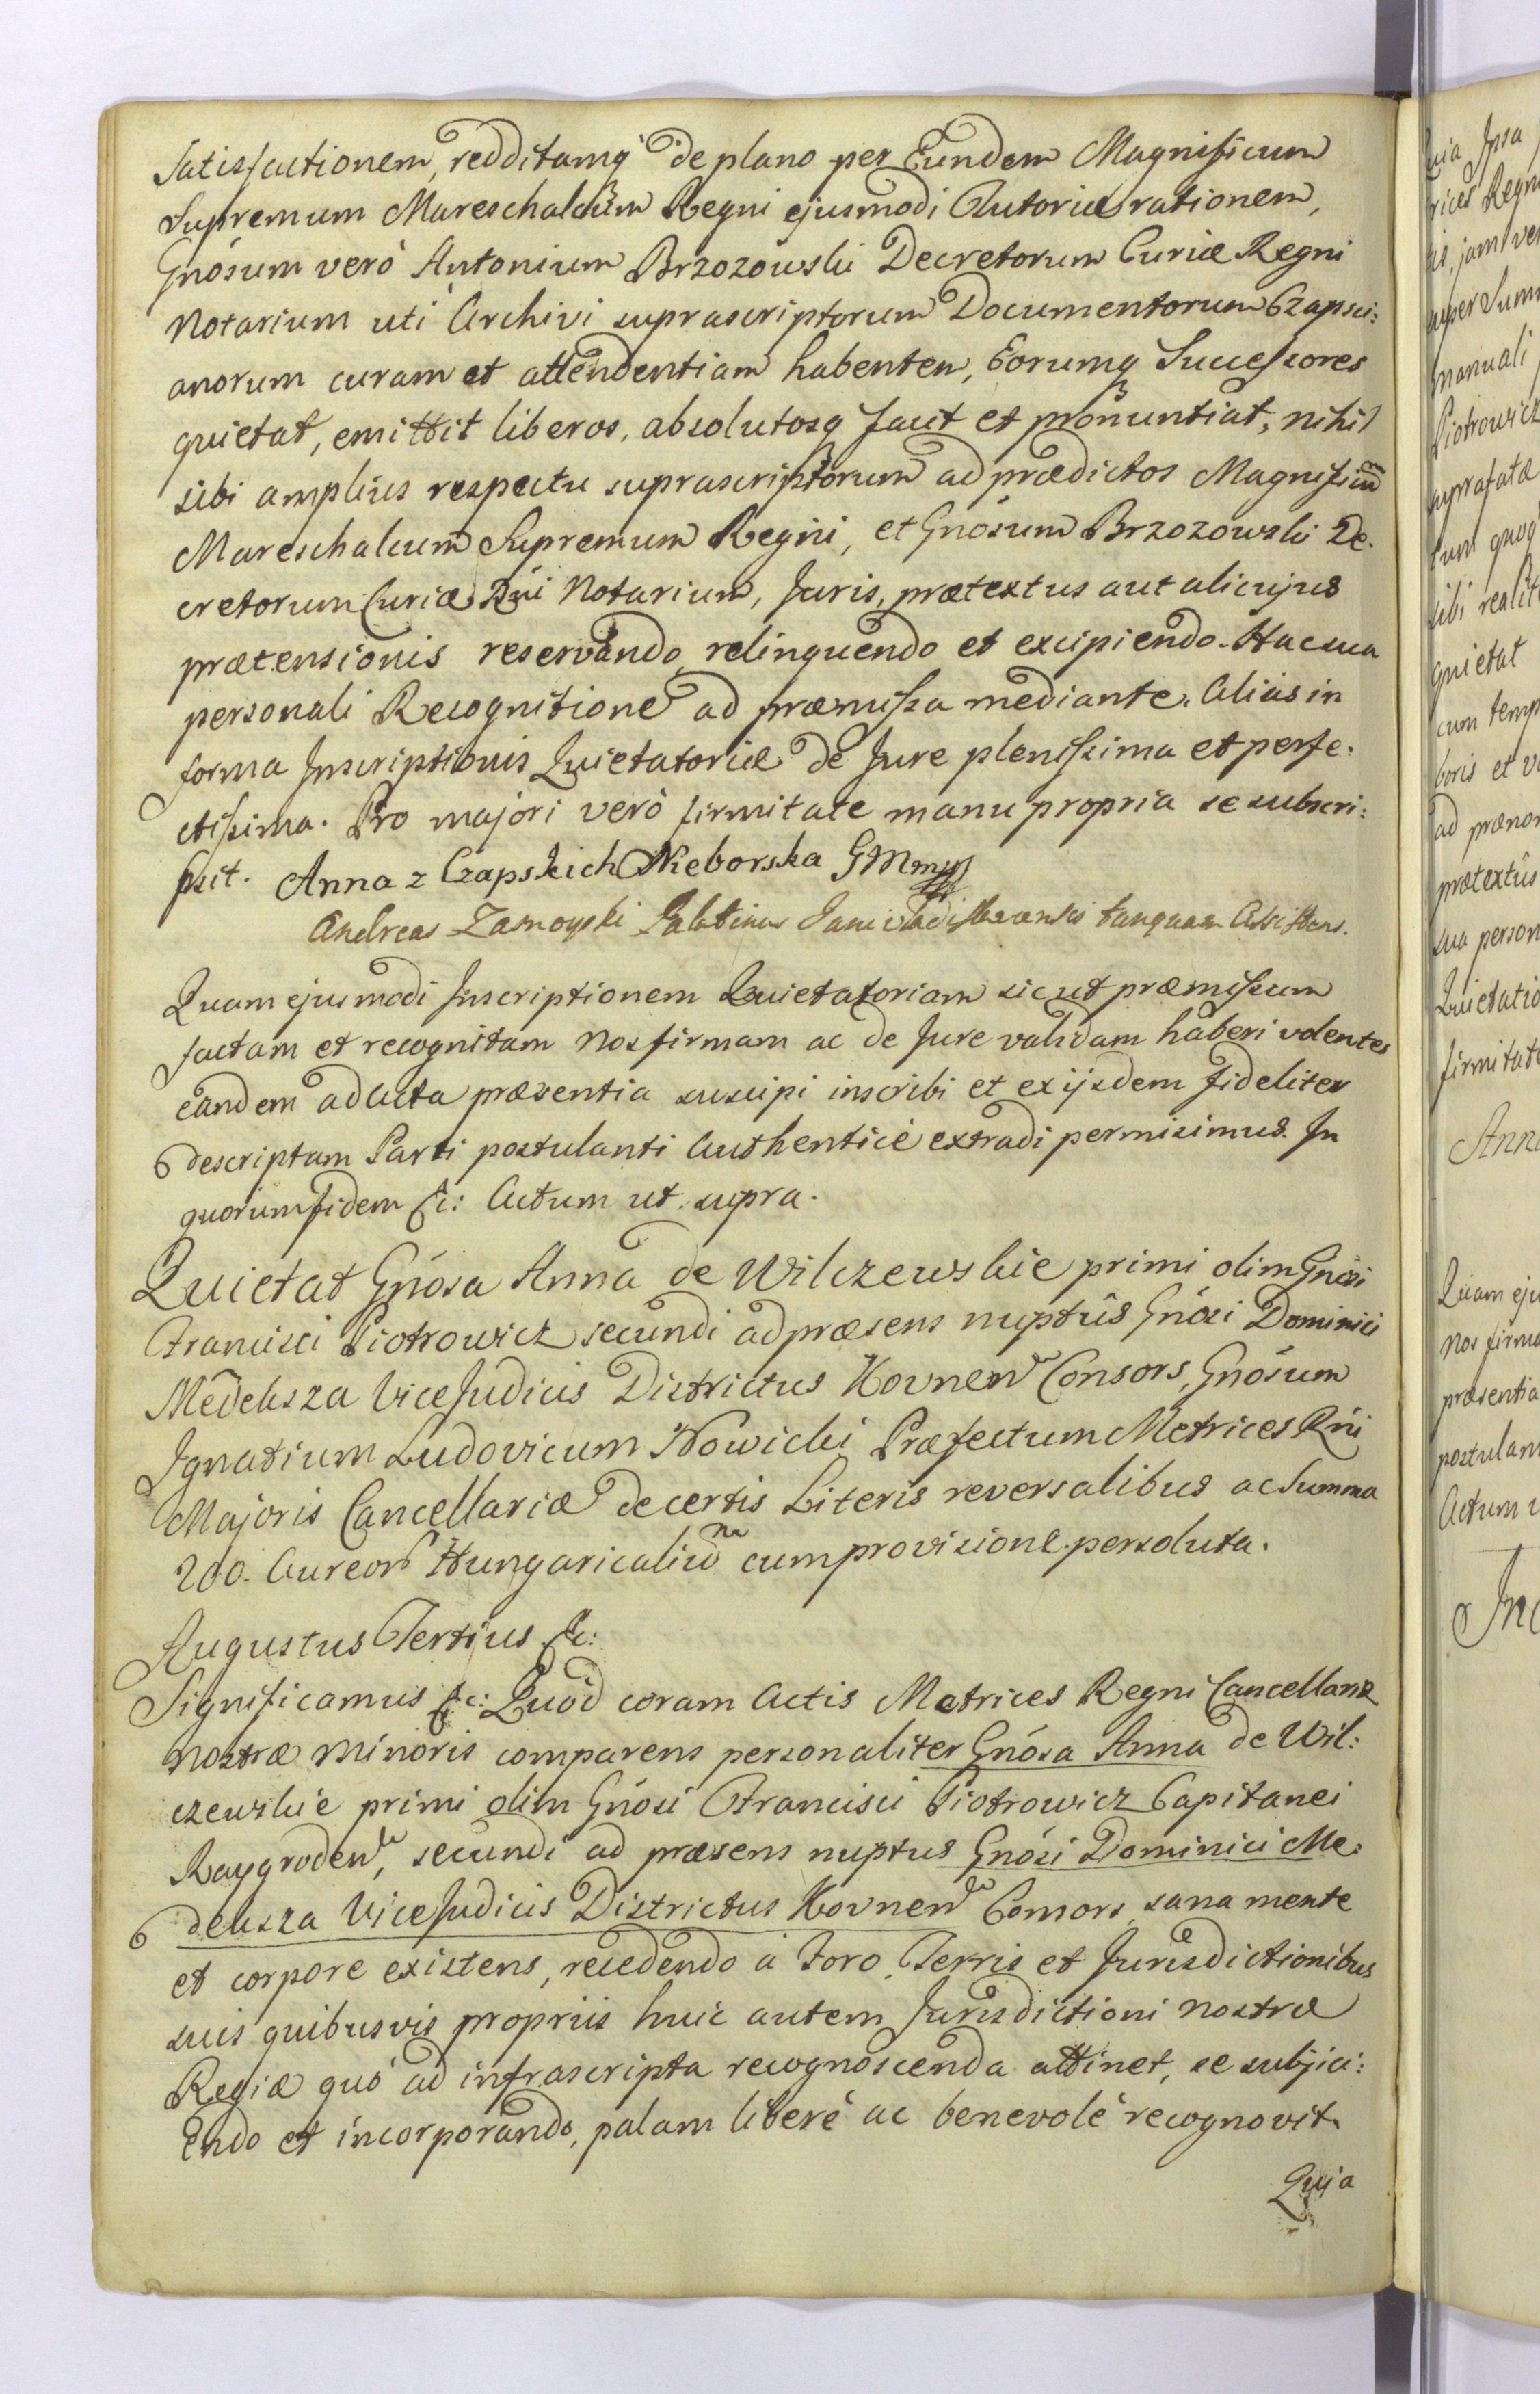 Satisfactionem, redditamq̃ de plano per Eundem Magnificum
Supremum Mareschalcum Regni ejusmodi Autoriæ rationem,
Gnõsum verò Antonium Brzozowski Decretorum Curiæ Regni
Notarium uti Archivi suprascriptorum Documentorum Czapsci:
anorum curam et attendentiam habentem, Eorumq̃ Successores
quietat, emittit liberos, absolutosq̃ facit et pronuntiat, nihil
sibi amplius respectu suprascriptorum ad prædictos Magnificum
Mareschalcum Supremum Regni, et Gnõsum Brzozowski De.
cretorum Curiæ Rñi Notarium, Juris, prætextus aut alicujus
prætensionis reservando, relinquendo et excipiendo. Hac sua
personali Recognitione ad præmissa mediante. Alias in
forma Inscriptionis Quietatoriæ de Jure plenissima et perfe:
ctissima. Pro majori verò firmitate manu propria se subscri:
psit. Anna z Czapskich Nieborska GMmp
Andreas Zamoyski Palatinus Inivladislaviensis tanquam Assistens.
Quam ejusmodi Inscriptionem Quietatoriam sic ut præmissum
factam et recognitam Nos firmam ac de Jure validam haberi volentes
eandem ad Acta præsentia suscipi inscribi et ex ijsdem fideliter
descriptam Parti postulanti Authenticè extradi permisimus. In
quorum fidem &c: Actum ut supra.
Quietat Gnõsa Anna de Wilczewskie primi olim Gnõsi
Francisci Piotrowicz secundi ad præsens nuptûs Gnõsi Dominici
Medeksza ViceJudicis Districtus Kovnen Consors, Gnõsum
Ignatium Ludovicum Nowicki Præfectum Metrices Rñi
Majoris Cancellariæ de certis Literis reversalibus ac Summa
200. Aureor̃ Hungaricaliũ cum provisione persoluta.
Augustus Tertius &c:
Significamus &c: Quòd coram Actis Metrices Regni Cancellariæ
Nostræ Minoris comparens personaliter Gnõsa Anna de Wil:
czewskie primi olim Gnõsi Francisci Piotrowicz Capitanei
Raygroden, secundi ad præsens nuptus Gnõsi Dominici Me:
deksza ViceJudicis Districtus Kovnen Consors, sana mente
et corpore existens, recedendo à Foro, Terris et Jurisdictionibus
suis quibusvis propriis huic autem Jurisdictioni Nostræ
Regiæ quò ad infrascripta recognoscenda attinet, se subjici:
endo et incorporando, palam liberè ac benevolè recognovit.
Quia